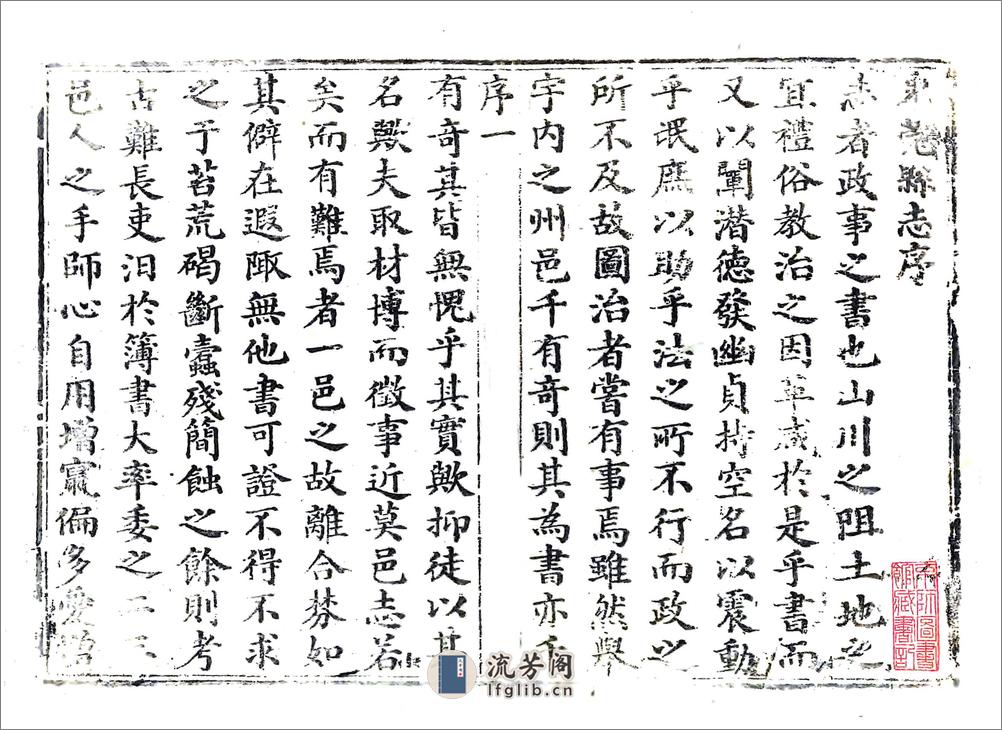 東莞縣志序
志者政事之書也山川之阻土地之
宜禮俗教治之因革咸於是乎書而
又以闡潛德發幽貞持空名以震動
乎氓庶以助乎法之所不行而政之
所不及故圖治者嘗有事焉雖然舉
宇内之州邑千有奇則其為書亦千
序一
有奇其皆無愧乎其實歟抑徒以其
名歟夫取材博而徵事近莫邑志若
矣而有難焉者一邑之故離合棼如
其僻在遐陬無他書可證不得不求
之于苔荒碣斷蠹殘簡蝕之餘則考
古難長吏汩於簿書大率委之二三
邑人之手師心自用增竄偏多愛憎
流芳阁
lfglib.cn
圖書
館藏書記